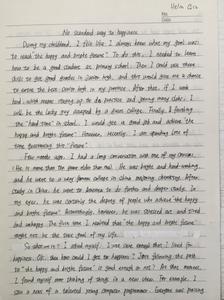 Helen Qin
No.
Date
No standard way to happiness
During my childhood, I felt like I always knew what my goal was:
to reach "the happy and bright future". To do this, I needed to learn
how to be a good student in primary school. Then I could use these
skills to get good grades in Junior high, and this would give me a chance
to enter the best Senior high in my province. After that, if I work
hard, which means staying up to do practice and joining many clubs, I
will be the lucky dog accepted by a dream college. Finally, I finishing
this "hard time" in school, I would get a good job and achieve the
happy and bright future. However, recently, I am spending lots of
time questioning this "future".
Few months ago, I had a long conversation with one of my cousins.
He is more than ten years older than me. He was bright and hard-working,
and he went to a very famous college in China studying chemistry. After
study in China, he went to America to do further and deeper study. In
my eyes, he was certainly the deputy of people who achieve the happy
and bright future. Astonishingly, however, he was stressed out and tired
and unhappy. The first time I realized that "the happy and bright future"
might not be the true goal of my life.
So what is it? I asked myself. I was sure enough that I lived for
happiness. OK, then how could I get to happiness? Does following the path
to "the happy and bright future" is good enough or not? At that moment,
I found myself seeing things in a new sense. For example, I
saw a news of a talented young computer programmer. Everyone was praising